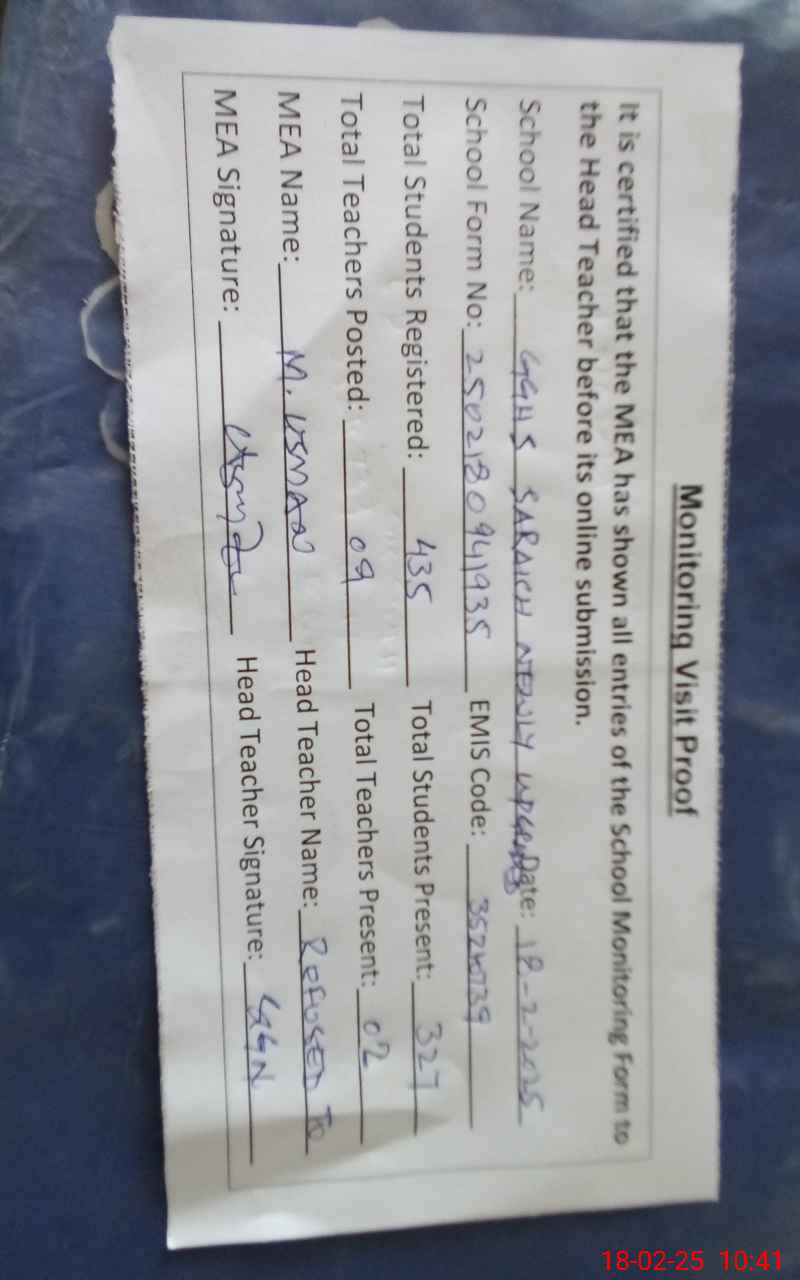 Monitoring Visit Proof
It is certified that the MEA has shown all entries of the School Monitoring Form to
the Head Teacher before its online submission.
School Name: GGHS SARAICH NEWLY UPGRADED Date: 18-2-2025
School Form No: 250218094193S EMIS Code: 35240739
Total Students Registered: 435 Total Students Present: 327
Total Teachers Posted: 09 Total Teachers Present: 02
MEA Name: M. USMAN Head Teacher Name: REFUSED TO
MEA Signature: Head Teacher Signature: SIGN
18-02-25 10:41